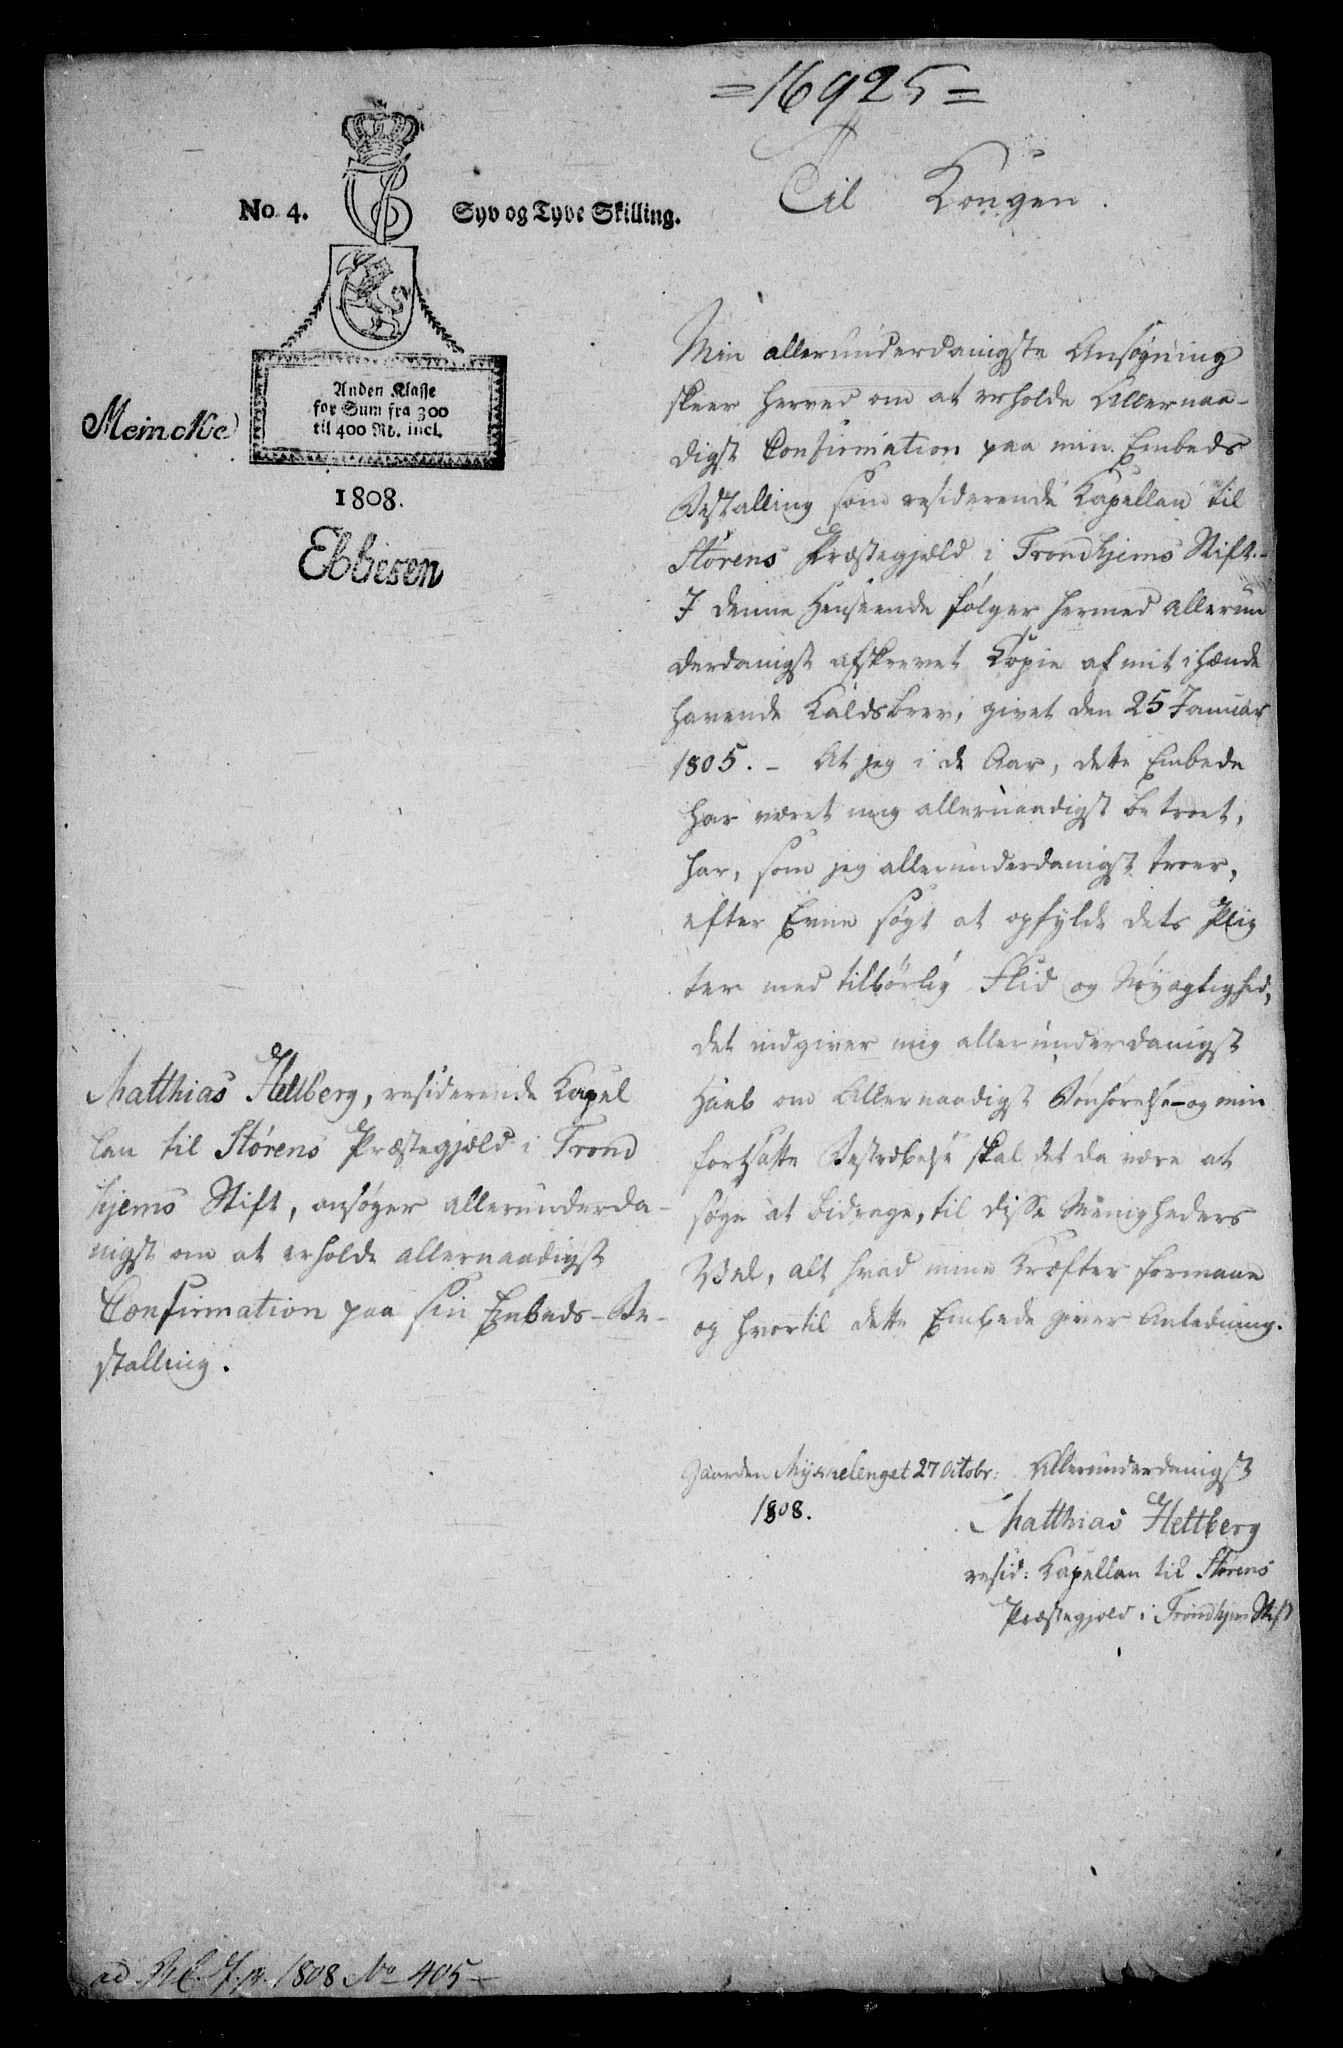 =16925=
Til Kongen.
No. 4. Syv og Tyve Skilling.
Anden Klasse
for Sum fra 300
til 400 Rd. incl.
Meincke
1808.
Ebbesen
Min allerunderdanigste Ansøgning
skeer herved om at erholde Allernaa-
digst Confirmation paa min Embeds
Bestalling som residerende Kapellan til
Størens Præstegjæld i Trondhjems Stift.-
I denne Henseende følger hermed allerun
derdanigst afskrevet Kopie af mit ihænde
havende Kaldsbrev, givet den 25 Januar
1805. - At jeg i de Aar, dette Embede
har været mig allernaadigst betroet,
har, som jeg allerunderdanigst troer,
efter Evne søgt at opfylde dets Plig
ter med tilbørlig Flid og Nøyagtighed,
det indgiver mig allerunderdanigst
Haab om Allernaadigst Bønhørelse - og min
fortsatte Bestræbelse skal det da være at
søge at bidrage, til disse Menigheders
Vel, alt hvad mine Kræfter formaae
og hvortil dette Embede giver Anledning.
Matthias Heltberg, residerende Kapel
lan til Størens Præstegjæld i Trond
hjems Stift, ansøger allerunderda-
nigst om at erholde allernaadigst
Confirmation paa sin Embeds-Be-
stalling.
Gaarden 27 Octobr: Allerunderdanigst
1808. Matthias Heltberg
resid: Kapellan til Størens
Præstegjæld i Trondhjems Stift
ad 1808 No 405